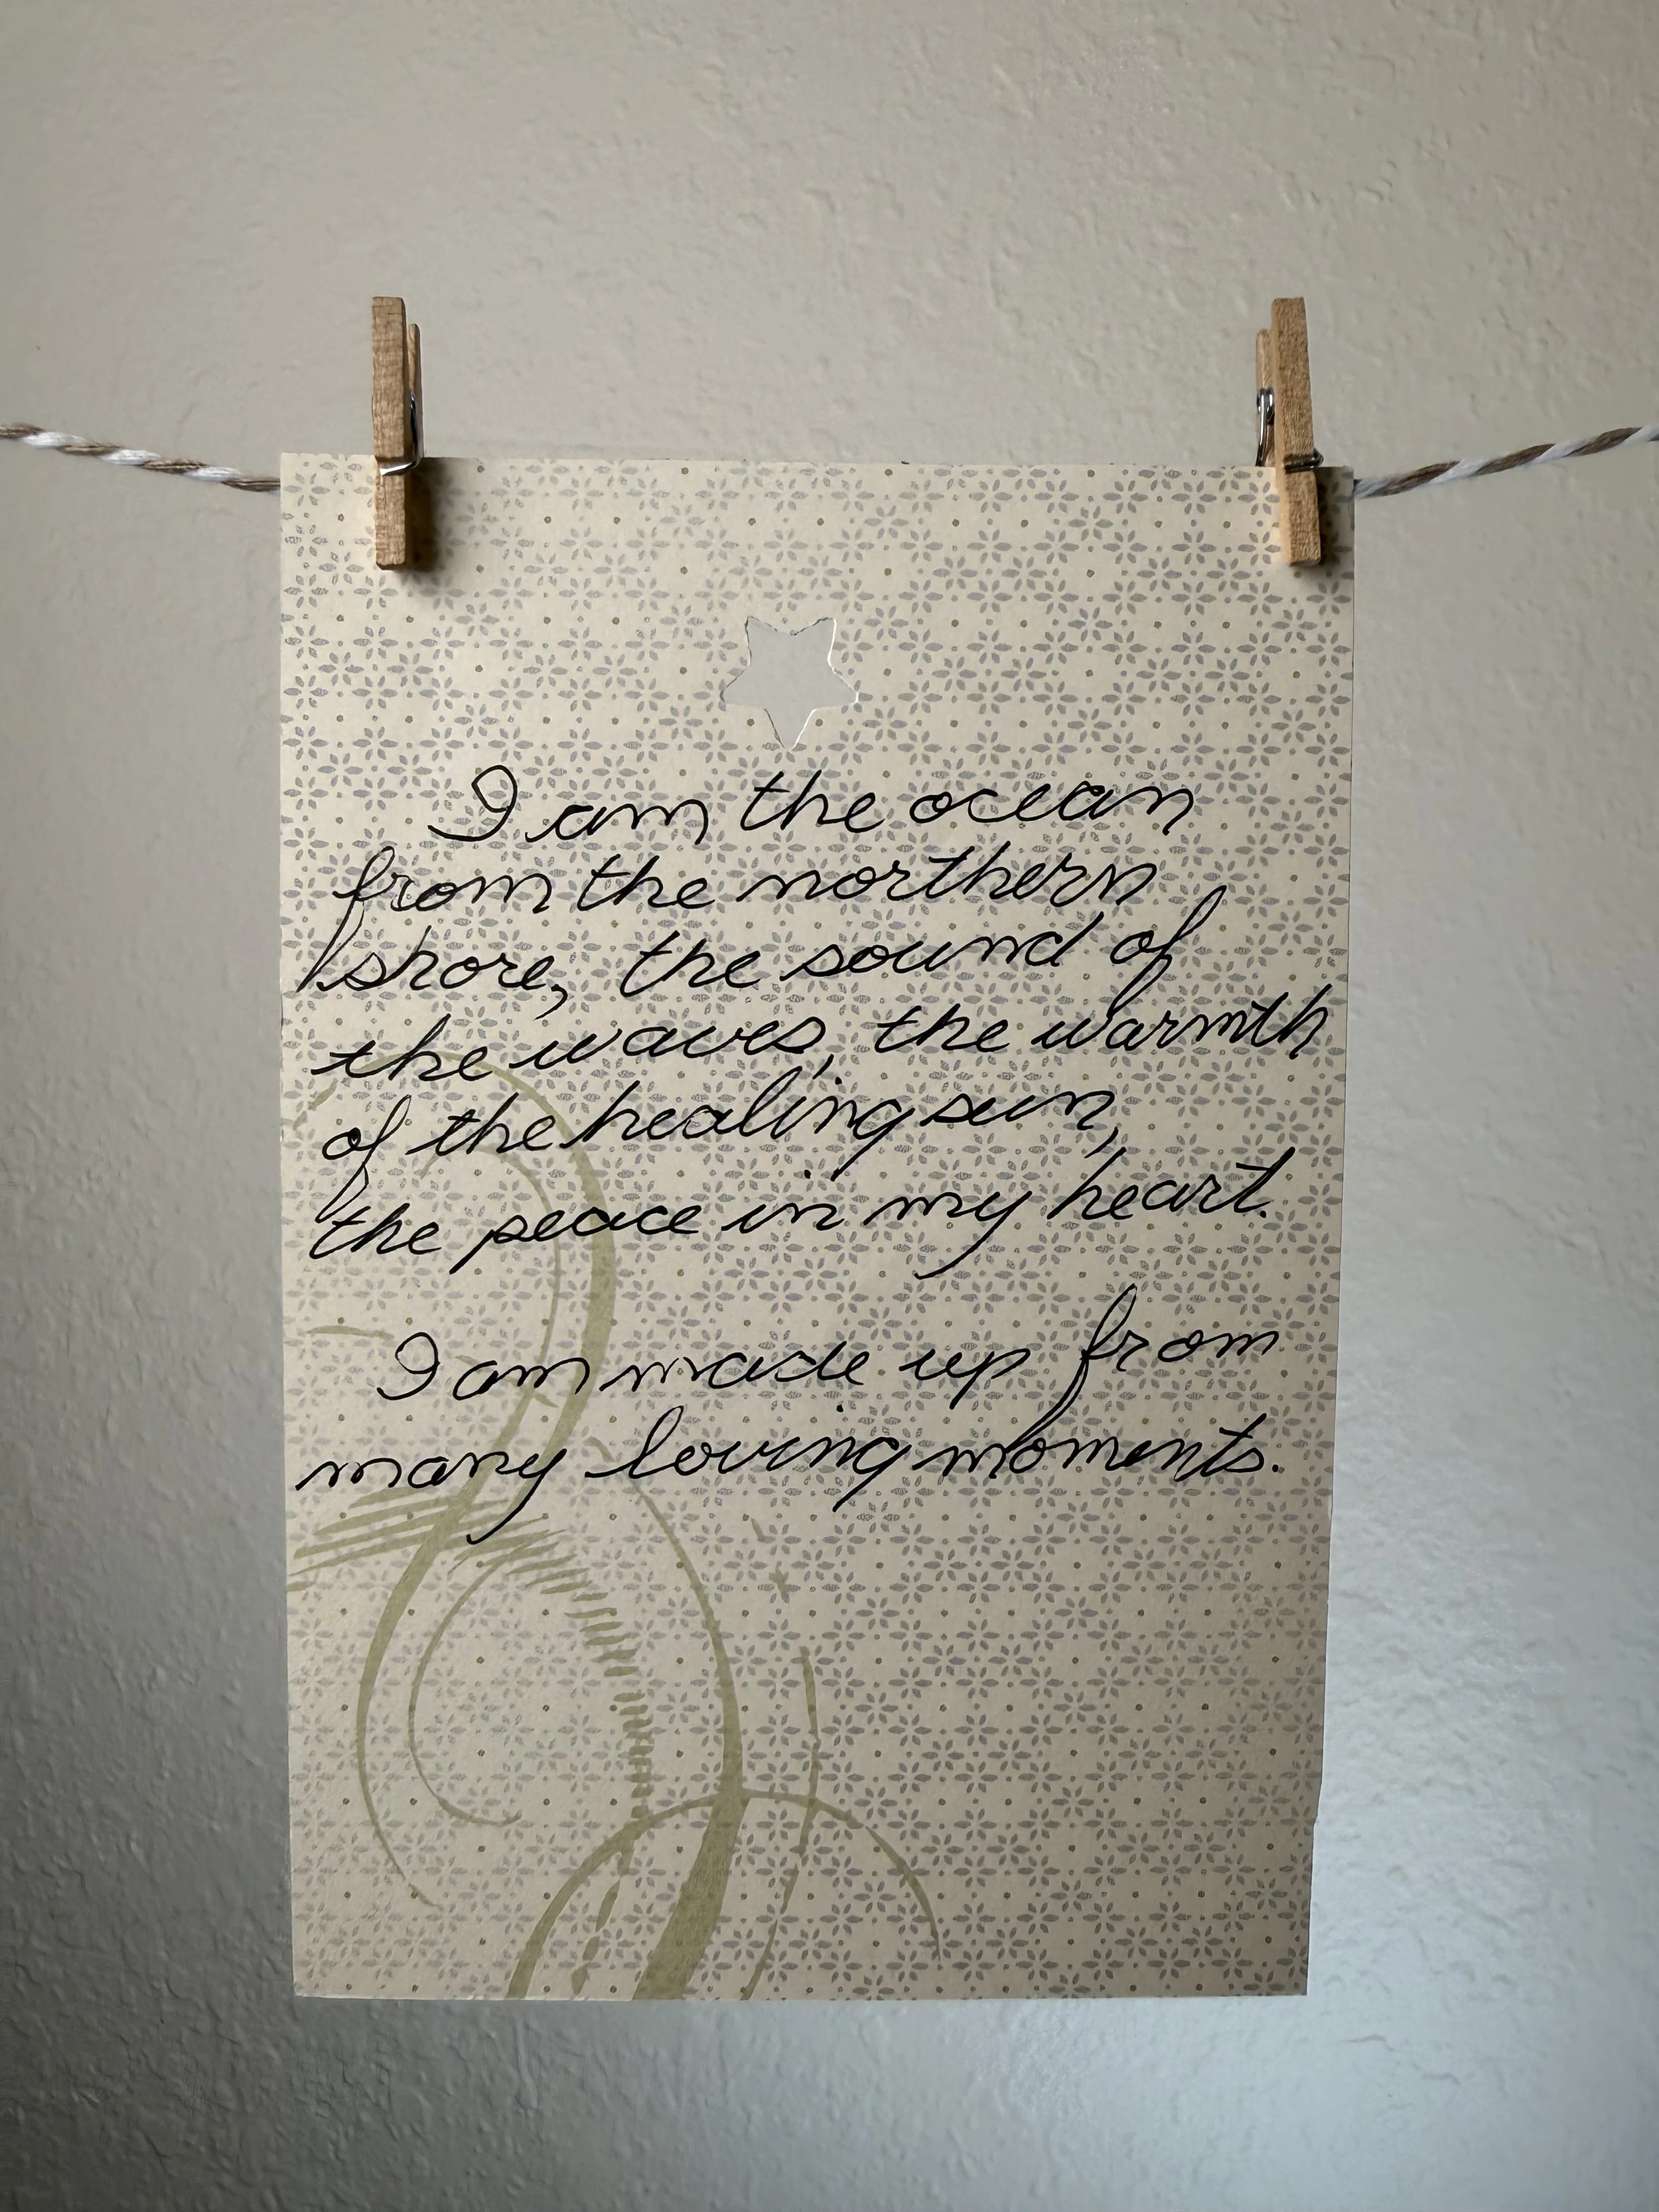 I am the ocean
from the northern
shore, the sound of
the waves, the warmth
of the healing sun,
the peace in my heart.
I am made up from
many loving moments.